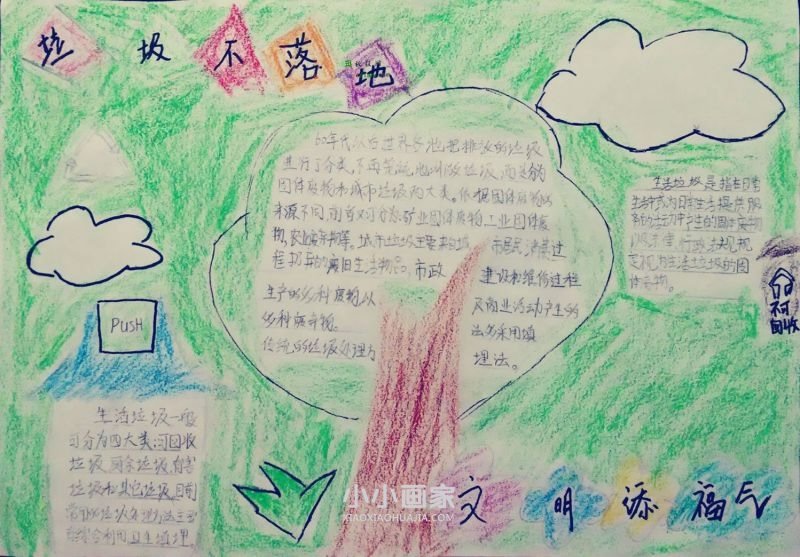 垃圾不落地
60年代以后世界各地把排放的垃圾
进行了分类,不再笼统地叫做垃圾,而是分为
固体废物和城市垃圾两大类。依据固体废物的
来源不同,前者可分为矿业固体废物、工业固体废
物、农业废弃物等。城市垃圾主要来自城市居民消费过
程扔弃的废旧生活物品,市政建设和维修过程
生产的多科废物,以及商业活动产生的
多科废弃物。
传统的垃圾处理方法多采用填
埋法。
生活垃圾是指在日常
生活中或为日常生活提供服
务的活动中产生的固体废物
以及法律、行政法规规
定视为生活垃圾的固
体废物。
不可
回收
PUSH
生活垃圾一般
可分为四大类:可回收
垃圾、厨余垃圾、有害
垃圾和其它垃圾,目前
常用的垃圾处理方法主要
有综合利用、卫生填埋
文明添福气
小小画家
XIAOXIAOHUAJIA.COM